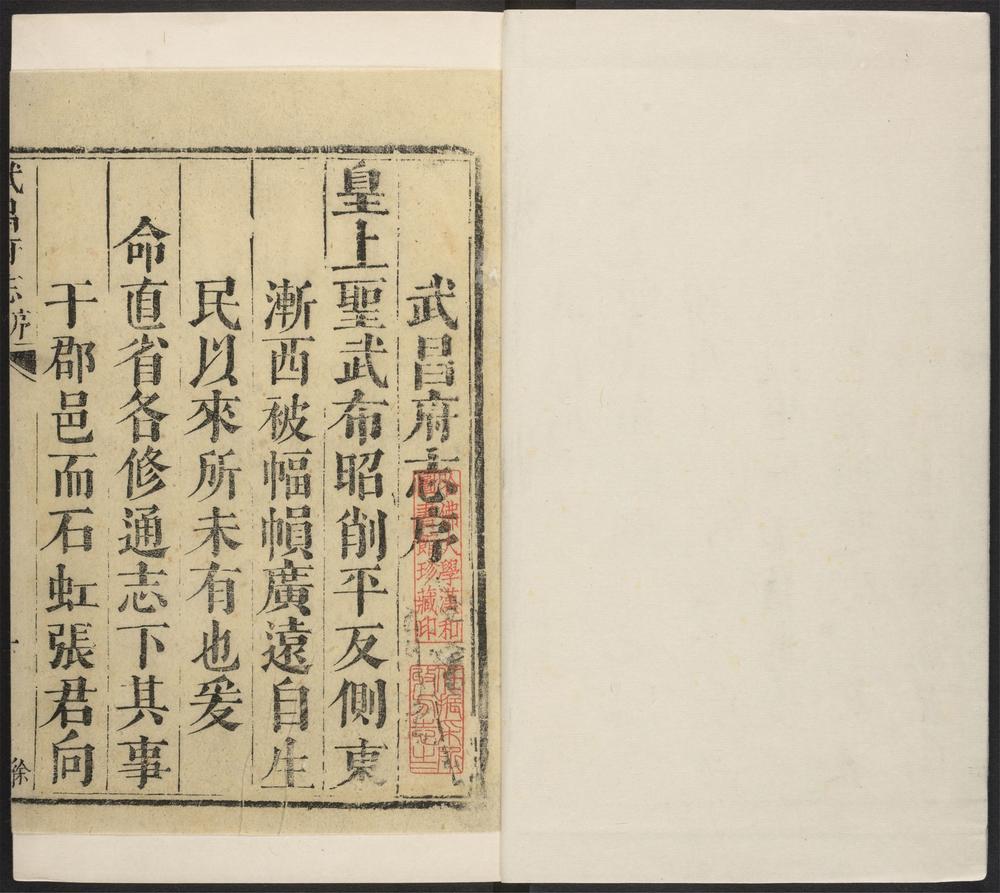 武昌府志序
皇上聖武布昭削平反側東
漸西被幅幀廣遠自生
民以來所未有也爰
命直省各修通志下其事
于郡邑而石虹張君向
武昌府志 序
一
徐
佛大學漢和
圖書館珍藏印